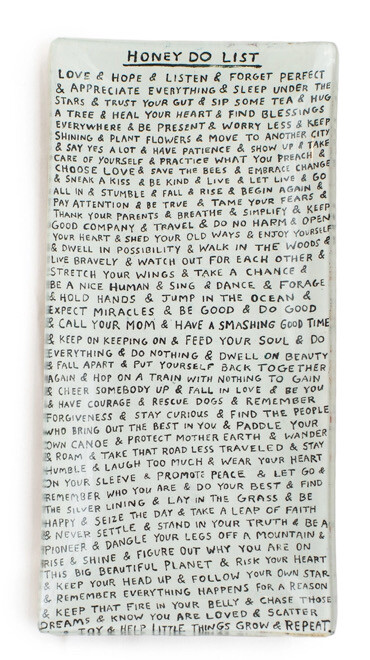 HONEY DO LIST
LOVE & HOPE & LISTEN & FORGET PERFECT
& APPRECIATE EVERYTHING & SLEEP UNDER THE
STARS & TRUST YOUR GUT & SIP SOME TEA & HUG
A TREE & HEAL YOUR HEART & FIND BLESSINGS
EVERYWHERE & BE PRESENT & WORRY LESS & KEEP
SHINING & PLANT FLOWERS & MOVE TO ANOTHER CITY
& SAY YES A LOT & HAVE PATIENCE & SHOW UP & TAKE
CARE OF YOURSELF & PRACTICE WHAT YOU PREACH &
CHOOSE LOVE & SAVE THE BEES & EMBRACE CHANGE
& SNEAK A KISS & BE KIND & LIVE & LET LIVE & GO
ALL IN & STUMBLE & FALL & RISE & BEGIN AGAIN &
PAY ATTENTION & BE TRUE & TAME YOUR FEARS &
THANK YOUR PARENTS & BREATHE & SIMPLIFY & KEEP
GOOD COMPANY & TRAVEL & DO NO HARM & OPEN
YOUR HEART & SHED YOUR OLD WAYS & ENJOY YOURSELF
& DWELL IN POSSIBILITY & WALK IN THE WOODS &
LIVE BRAVELY & WATCH OUT FOR EACH OTHER &
STRETCH YOUR WINGS & TAKE A CHANCE &
BE A NICE HUMAN & SING & DANCE & FORAGE
& HOLD HANDS & JUMP IN THE OCEAN &
EXPECT MIRACLES & BE GOOD & DO GOOD
& CALL YOUR MOM & HAVE A SMASHING GOOD TIME
& KEEP ON KEEPING ON & FEED YOUR SOUL & DO
EVERYTHING & DO NOTHING & DWELL ON BEAUTY
& FALL APART & PUT YOURSELF BACK TOGETHER
AGAIN & HOP ON A TRAIN WITH NOTHING TO GAIN
& CHEER SOMEBODY UP & FALL IN LOVE & BE YOU
& HAVE COURAGE & RESCUE DOGS & REMEMBER
FORGIVENESS & STAY CURIOUS & FIND THE PEOPLE
WHO BRING OUT THE BEST IN YOU & PADDLE YOUR
OWN CANOE & PROTECT MOTHER EARTH & WANDER
& ROAM & TAKE THAT ROAD LESS TRAVELED & STAY
HUMBLE & LAUGH TOO MUCH & WEAR YOUR HEART
ON YOUR SLEEVE & PROMOTE PEACE & LET GO &
REMEMBER WHO YOU ARE & DO YOUR BEST & FIND
THE SILVER LINING & LAY IN THE GRASS & BE
HAPPY & SEIZE THE DAY & TAKE A LEAP OF FAITH
& NEVER SETTLE & STAND IN YOUR TRUTH & BE A
PIONEER & DANGLE YOUR LEGS OFF A MOUNTAIN &
RISE & SHINE & FIGURE OUT WHY YOU ARE ON
THIS BIG BEAUTIFUL PLANET & RISK YOUR HEART
& KEEP YOUR HEAD UP & FOLLOW YOUR OWN STAR
& REMEMBER EVERYTHING HAPPENS FOR A REASON
& KEEP THAT FIRE IN YOUR BELLY & CHASE THOSE
DREAMS & KNOW YOU ARE LOVED & SCATTER
JOY & HELP LITTLE THINGS GROW & REPEAT.